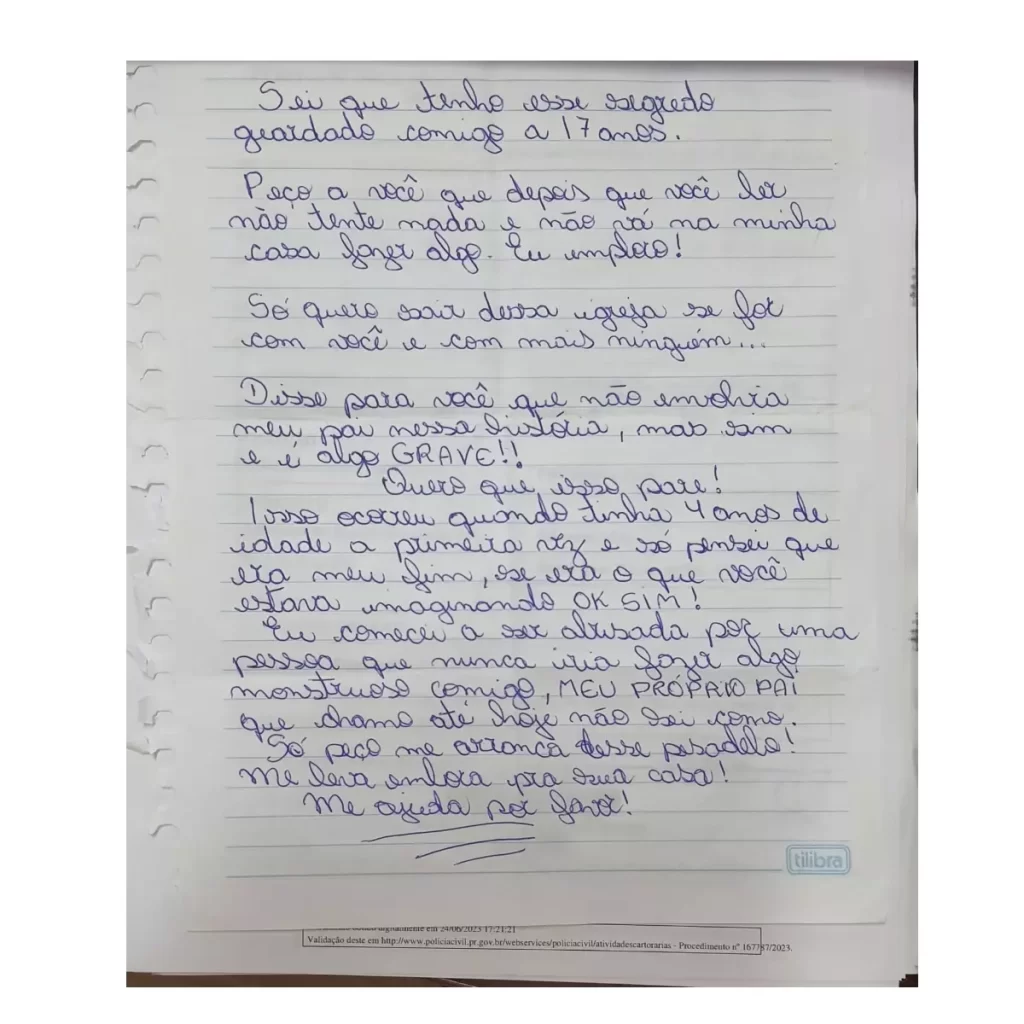 Sei que tenho esse segredo
guardado comigo a 17 anos.
Peço a você que depois que você ler
não tente nada e não vá na minha
casa fazer algo. Eu imploro!
Só quero sair dessa igreja se for
com você e com mais ninguém...
Disse para você que não envolvia
meu pai nessa história, mas sim
e é algo GRAVE!!
Quero que isso pare!
Isso ocorreu quando tinha 4 anos de
idade a primeira vez e só pensei que
era meu fim, se era o que você
estava imaginando OK SIM!
Eu comecei a ser abusada por uma
pessoa que nunca iria fazer algo
monstruoso comigo, MEU PRÓPRIO PAI
que chamo até hoje não sei como.
Só peço me arranca desse pesadelo!
Me leva embora pra sua casa!
Me ajuda por favor!
tilibra
em 24/06/2023 17:21:21
Validação deste em http://www.policiacivil.pr.gov.br/webservices/policiacivil/atividadescartorarias - Procedimento nº 167787/2023.